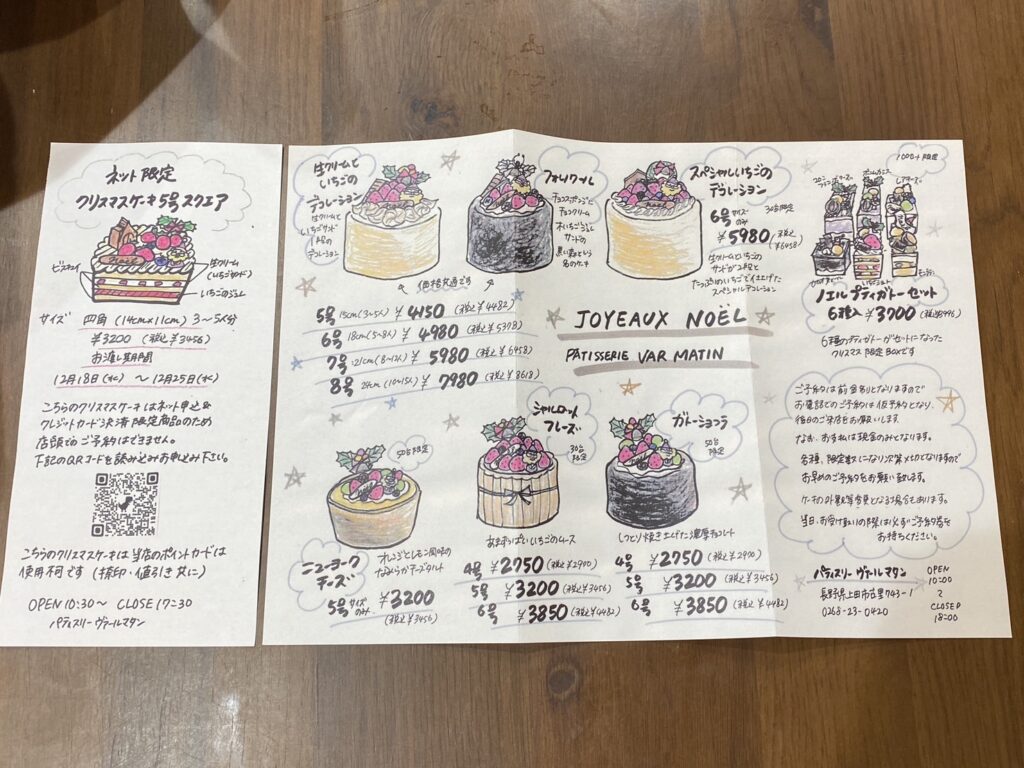 ネット限定
クリスマスケーキ5号スクエア
ビスキュイ
生クリーム
(いちごサンド)
いちごのジュレ
サイズ 四角 (14cm×11cm) 3〜5人分
¥3200 (税込¥3456)
お渡し期間
12月18日(水) 〜12月25日(水)
こちらのクリスマスケーキはネット申込&
クレジットカード決済限定商品のため
店頭でのご予約はできません。
下記のQRコードを読み込みお申込み下さい。
こちらのクリスマスケーキは当店のポイントカードは
使用不可です (捺印・値引き共に)
OPEN 10:30〜 CLOSE 17:30
パティスリーヴァールマタン
生クリームと
いちごの
デコレーション
生クリームと
いちごサンド
デコレーション
フォレノワール
チョコスポンジに
チョコクリーム
木いちごジュレ
サンドの
黒い森という
名のケーキ
スペシャルいちごの
デコレーション
6号サイズのみ
30台限定
¥5980(税込¥6458)
生クリームといちごの
サンドが2段と
たっぷりのいちごで仕上げた
スペシャルデコレーション
価格共通です
5号 15cm(3~5人) ¥4150 (税込¥4482)
6号 18cm(5~8人) ¥4980 (税込¥5378)
7号 21cm(8~12人) ¥5980 (税込¥6458)
8号 24cm(10~15人) ¥7980 (税込¥8618)
JOYEAUX NOËL
PÂTISSERIE VAR MATIN
ノエルプティガトーセット
6種入 ¥3700
6種のプティガトーがセットになった
クリスマス限定BOXです
50台限定
ニューヨーク
チーズ
オレンジとレモン風味の
なめらかチーズタルト
5号サイズのみ ¥3200
(税込¥3456)
シャルロット
フレーズ
30台限定
あまずっぱいいちごのムース
4号 ¥2750 (税込¥2900)
5号 ¥3200 (税込¥3456)
6号 ¥3850 (税込¥4482)
ガトーショコラ
50台限定
しっとり焼き上げた濃厚チョコレート
4号 ¥2750 (税込¥2900)
5号 ¥3200 (税込¥3456)
6号 ¥3850 (税込¥4482)
ご予約は前金制となりますので
お電話でのご予約は仮予約となり、
後日のご来店をお願いします。
なお、お支払は現金のみとなります。
各種、限定数になり次第〆切となりますので
お早めのご予約をお願い致します。
ケーキの外観等変更となる場合もあります。
当日、お受け取りの際は必ずご予約票を
お持ちください。
パティスリー ヴァールマタン
長野県上田市古里743-1
0268-23-0420
OPEN
10:00
〜
CLOSE
18:00